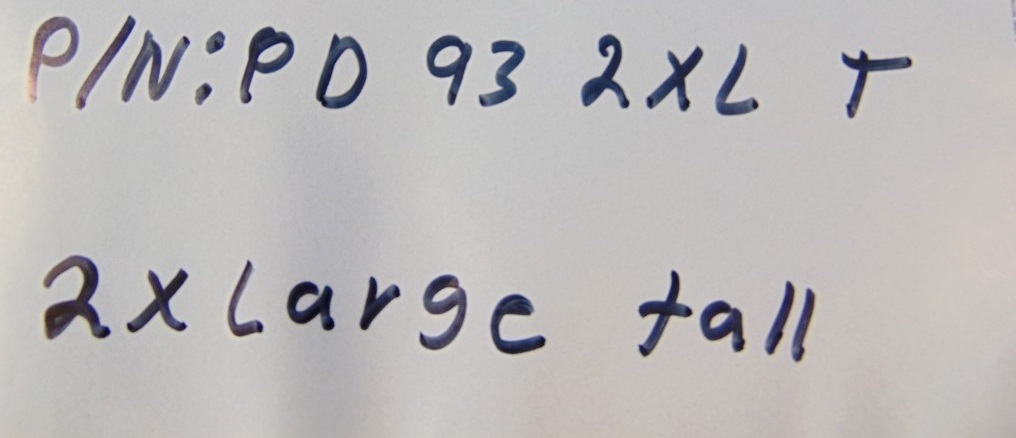 P/N:PD 93 2XL T
2x Large tall